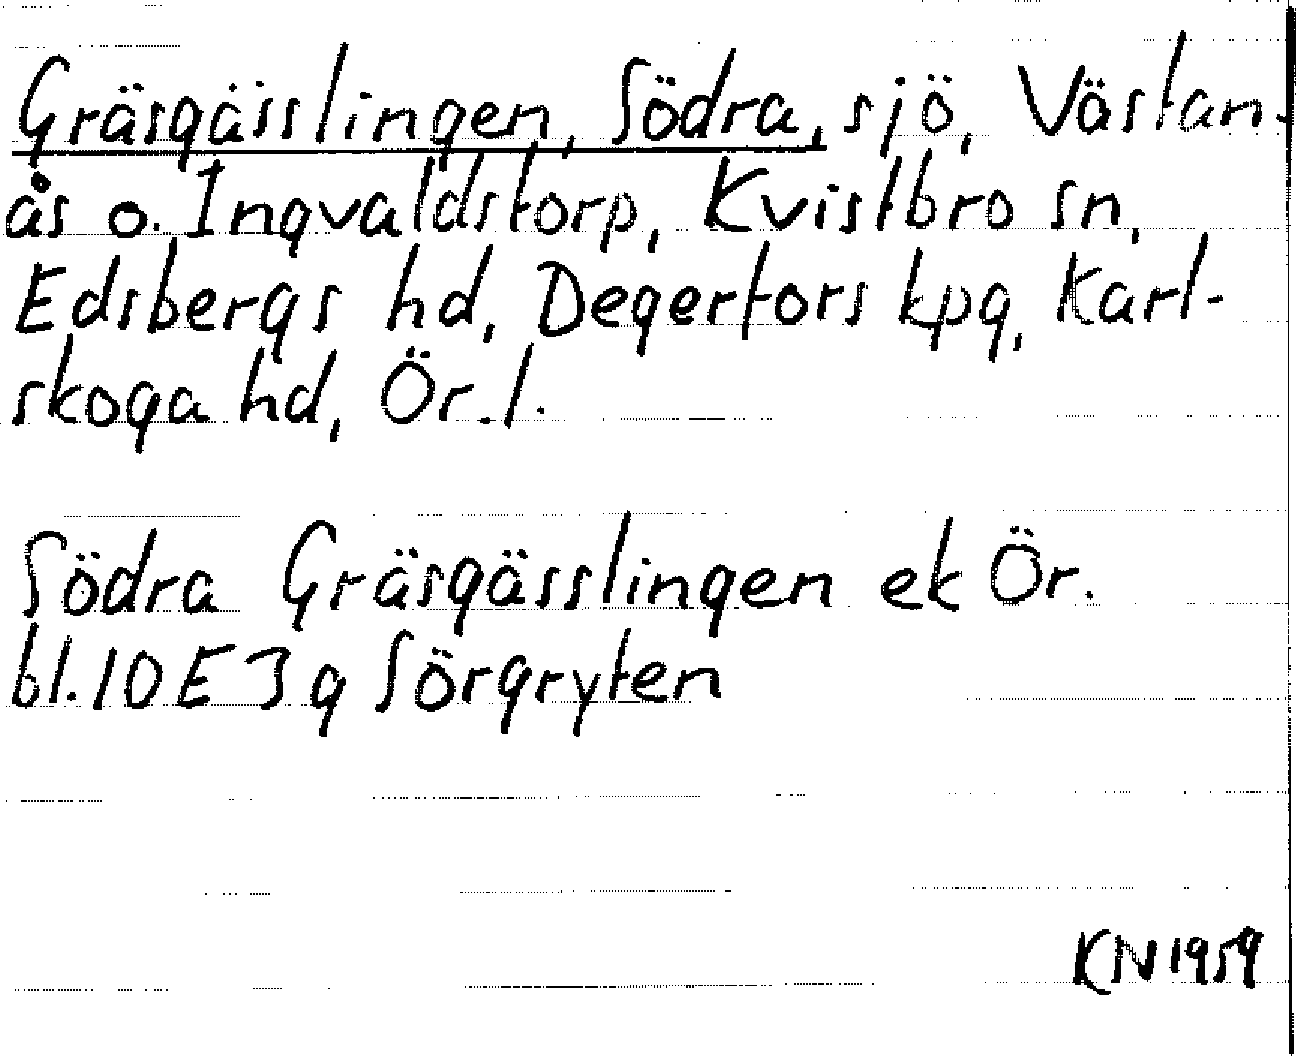 Gräsgässlingen, Södra, sjö, Västan-
ås o. Ingvaldstorp, Kvistbro sn,
Edsbergs hd, Degerfors kpg, Karl-
skoga hd, Ör. l.
Södra Gräsgässlingen ek Ör.
bl. 10 E 3 g Sörgryten
KN 1959